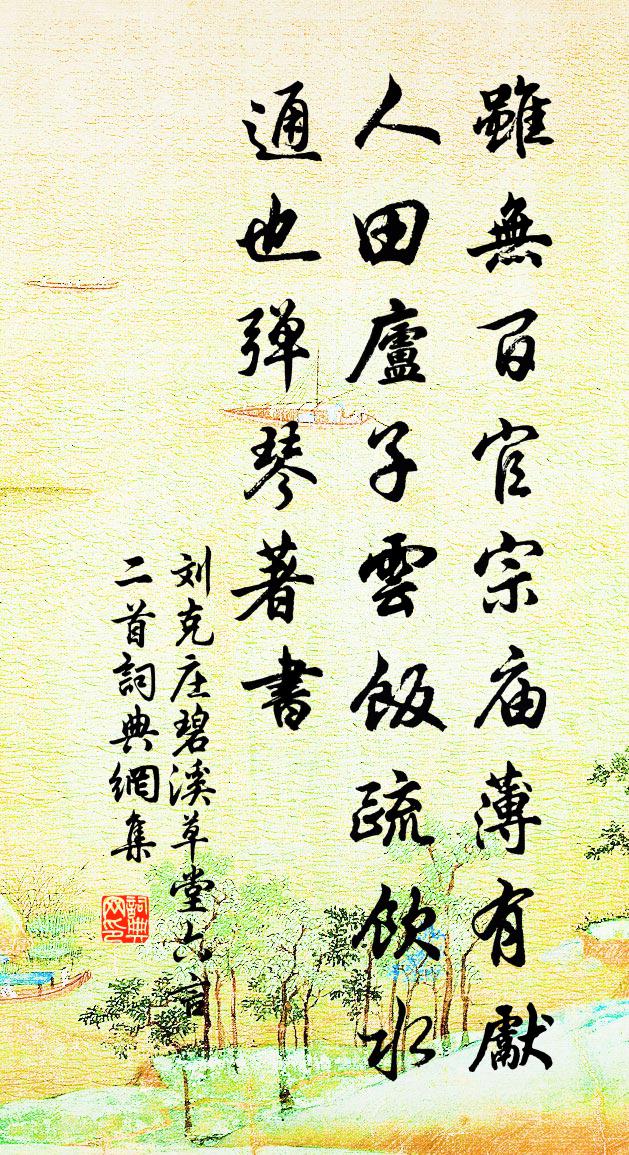 雖無百官宗庙薄有獻
人田廬子雲飯疏飲水
通也弹琴著書
刘克庄碧溪草堂六言
二首詞典網集
詞典网印